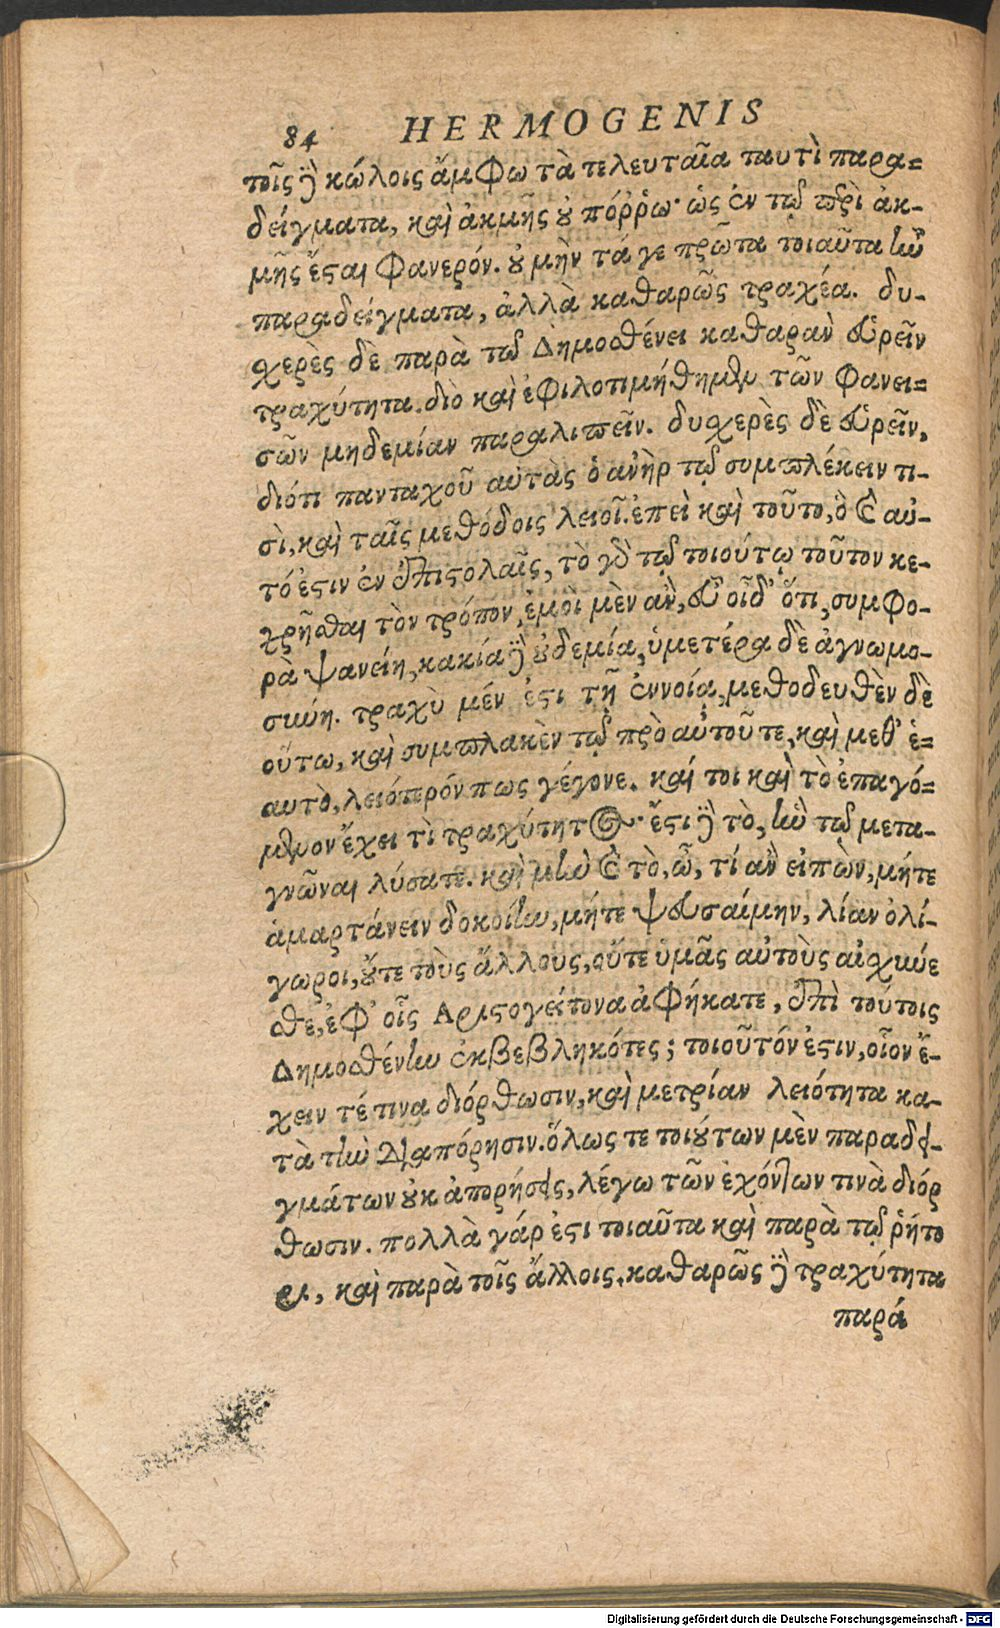 84 HERMOGENIS
τοῖς δὲ κώλοις ἄμφω τὰ τελευταῖα ταυτὶ παρα-
δείγματα, καὶ ἀκμῆς οὐ πόῤῥω· ὡς ἐν τῷ περὶ ἀκ-
μῆς ἔσται φανερόν. οὐ μὴν τά γε πρῶτα τοιαῦτα ἦν
παραδείγματα, ἀλλὰ καθαρῶς τραχέα. δυ-
χερὲς δὲ παρὰ τῷ Δημοσθένει καθαρὰν εὑρεῖν
τραχύτητα. διὸ καὶ ἐφιλοτιμήθημεν τῶν φανει-
σῶν μηδεμίαν παραλιπεῖν. δυχερὲς δὲ εὑρεῖν,
διότι πανταχοῦ αὐτὰς ὁ ἀνὴρ τῷ συμπλέκειν τι-
σὶ, καὶ ταῖς μεθόδοις λειοῖ. ἐπεὶ καὶ τοῦτο, ὃ καὶ αὐ-
τό ἐστιν ἐν ἐπιστολαῖς, τὸ γὰρ τῷ τοιούτῳ τοῦτον κε-
χρῆσθαι τὸν τρόπον, ἐμοὶ μὲν ἂν, εὖ οἶδ' ὅτι, συμφο-
ρὰ ψανείη, κακία δὲ οὐδεμία, ὑμετέρα δὲ ἀγνωμο-
σύνη. τραχὺ μέν ἐστι τῇ ἐννοίᾳ, μεθοδευθὲν δὲ
οὕτω, καὶ συμπλακὲν τῷ πρὸ αὐτοῦ τε, καὶ μεθ' ἑ-
αυτὸ, λειότερόν πως γέγονε. καί τοι καὶ τὸ ἐπαγό-
μενον ἔχει τὶ τραχύτητος· ἔστι δὲ τὸ, ἣν τῷ μετα-
γνῶναι λύσατε. καὶ μὴν καὶ τὸ, ὦ, τί ἂν εἰπὼν, μήτε
ἁμαρτάνειν δοκοίην, μήτε ψευσαίμην, λίαν ὀλί-
γωροι, οὔτε τοὺς ἄλλους, οὔτε ὑμᾶς αὐτοὺς αἰσχύνε
σθε, ἐφ' οἷς Αριστογείτονα ἀφήκατε, ἐπὶ τούτοις
Δημοσθένην ἐκβεβληκότες; τοιοῦτόν ἐστιν, οἷον ἔ-
χειν τέ τινα διόρθωσιν, καὶ μετρίαν λειότητα κα-
τὰ τὴν διαπόρησιν. ὅλως τε τοιούτων μὲν παραδει-
γμάτων οὐκ ἀπορήσεις, λέγω τῶν ἐχόντων τινὰ διόρ
θωσιν. πολλὰ γάρ ἐστι τοιαῦτα καὶ παρὰ τῷ ῥήτο
ρι, καὶ παρὰ τοῖς ἄλλοις. καθαρῶς δὲ τραχύτητα
παρά
Digitalisierung gefördert durch die Deutsche Forschungsgemeinschaft - DFG